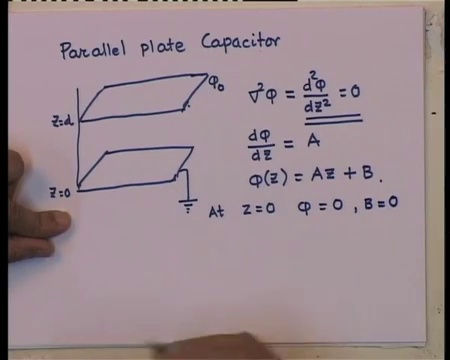 Parallel plate Capacitor
φ₀
∇²φ = d²φ/dz² = 0
z=d
dφ/dz = A
φ(z) = Az + B.
z=0
At z=0 φ=0, B=0